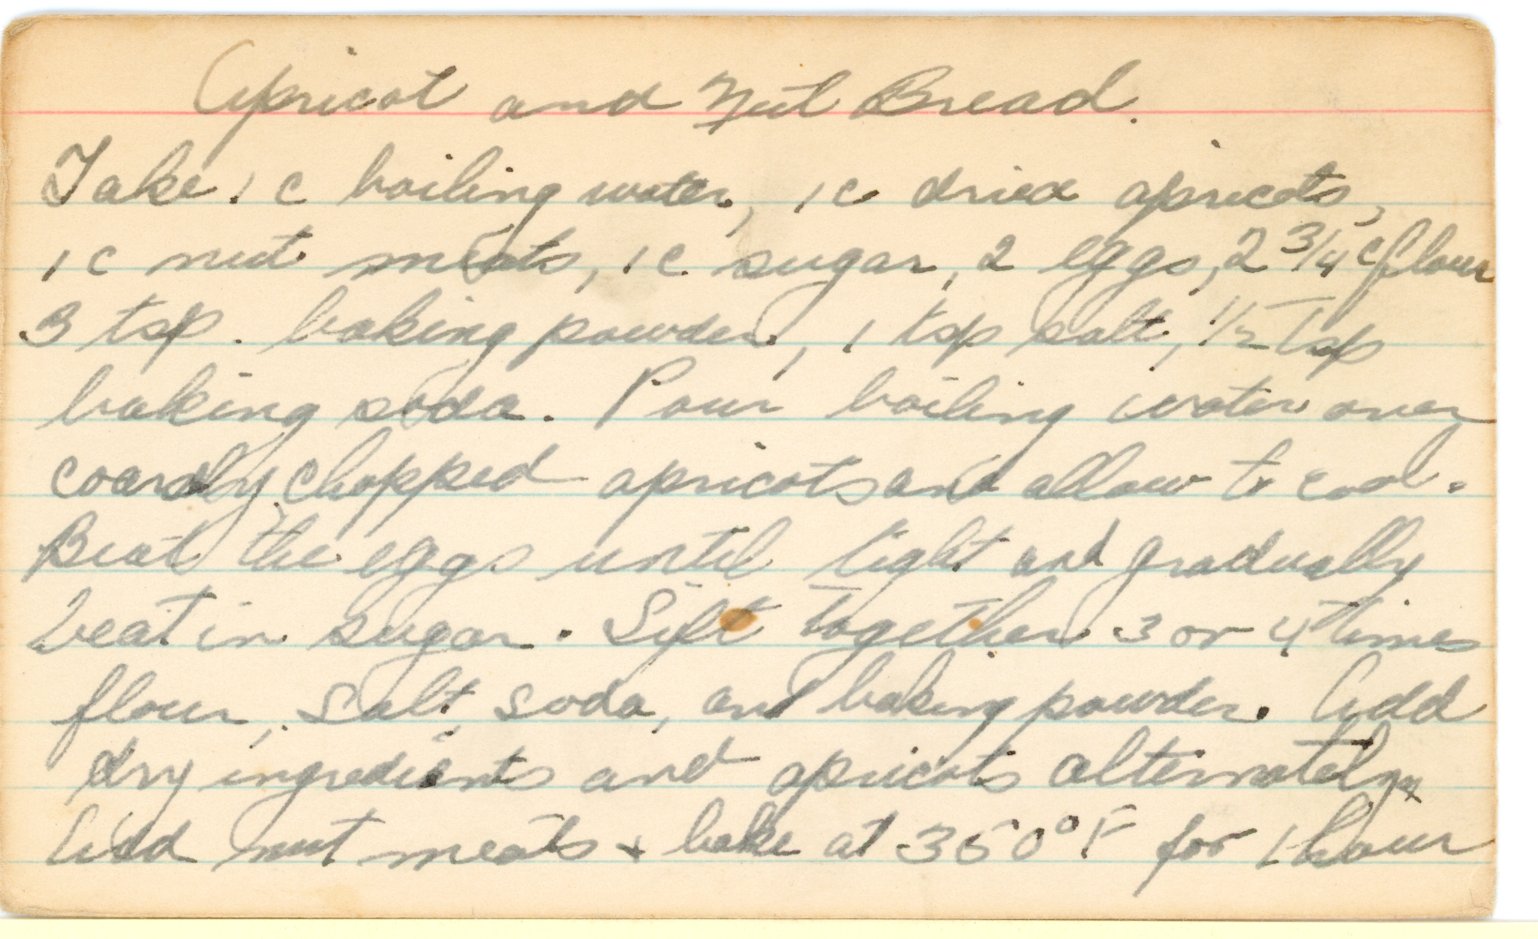 Apricot and Nut Bread.
Take 1 c boiling water, 1 c dried apricots,
1 c nut meats, 1 c sugar, 2 eggs, 2 3/4 c flour
3 tsp. baking powder, 1 tsp salt, 1/2 tsp
baking soda. Pour boiling water over
coarsly chopped apricots and allow to cool.
Beat the eggs until light and gradually
beat in sugar. Sift together 3 or 4 times
flour, salt, soda, and baking powder. Add
dry ingredients and apricots alternately
Add nut meats + bake at 350°F for 1 hour